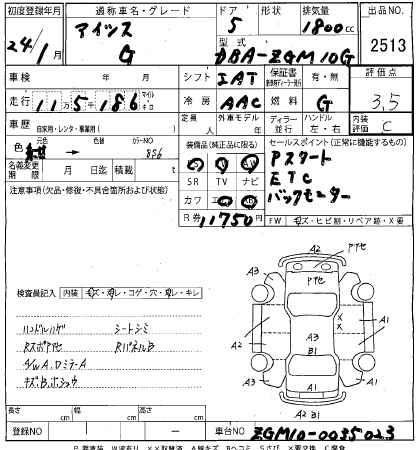 初度登録年月 通称車名・グレード ドア 形状 排気量 出品NO.
24/1月 アイシス G 5 1800cc 2513
型式 DBA-ZGM10G
車検 年 月 シフト IAT 保証書 有・無 評価点
走行 11万5千186 マイル キロ 冷房 AAC 燃料 G 3.5
車歴 自家用・レンタ・事業用( ) 定員 人 外車モデル 年 ディーラー 並行 ハンドル 左・右 内装評価 C
色 元色 → 色替 カラーNO 856 装備品(純正品に限る) セールスポイント(正常に機能するもの)
名義変更期限 月 日迄 積載 t SR TV ナビ Pスタート
注意事項(欠品・修復・不具合箇所および状態) カワ ETC
バックモニター
R券 11750円 FW キズ・ヒビ割・リペア跡・X要
検査員記入 内装 キズ・汚レ・コゲ・穴・取レ・キレ
ハンドルハゲ シートシミ
RスポアセA RパネルB
A/WA.DミラーA
キズ.B.ホショウ
A2 アセ
A3 A3
A2 X X A1
A3
B1
A3 A1
A1
A2 B1
長さ cm 幅 cm 高さ cm
登録NO ー 車台NO ZGM10-0035023
P 要塗装 W波有り XX取替済 A線キズ Bヘコミ Sさび X要交換 C腐食